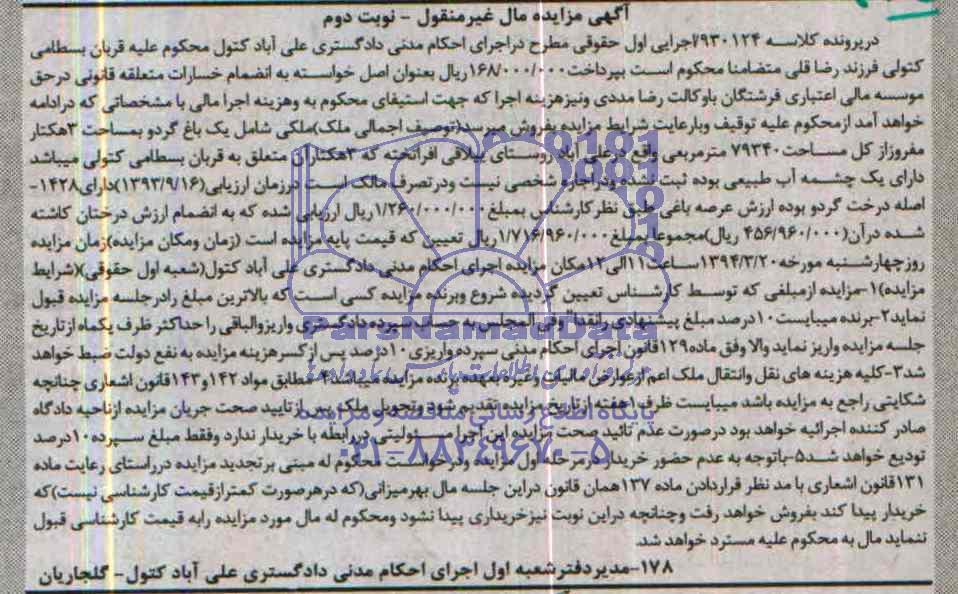 آگهی مزایده مال غیرمنقول - نوبت دوم
درپرونده کلاسه ۹۳۰۱۲۴/اجرایی اول حقوقی مطرح دراجرای احکام مدنی دادگستری علی آباد کتول محکوم علیه قربان بسطامی
کتولی فرزند رضا قلی متضامنا محکوم است بپرداخت ۱۶۸/۰۰۰/۰۰۰ریال بعنوان اصل خواسته به انضمام خسارات متعلقه قانونی درحق
موسسه مالی اعتباری فرشتگان باوکالت رضا مددی ونیزهزینه اجرا که جهت استیفای محکوم به وهزینه اجرا مالی با مشخصاتی که درادامه
خواهد آمد ازمحکوم علیه توقیف وبارعایت شرایط مزایده بفروش میرسد(توصیف اجمالی ملک)ملکی شامل یک باغ گردو بمساحت ۳هکتار
مفروزاز کل مساحت۷۹۳۴۰ مترمربعی واقع درعلی آباد روستای ییلاقی افراتخته که ۳هکتاران متعلق به قربان بسطامی کتولی میباشد
دارای یک چشمه آب طبیعی بوده ثبت نشده ودراجاره شخصی نیست ودرتصرف مالک است درزمان ارزیابی(۱۳۹۳/۹/۱۶)دارای۱۴۲۸-
اصله درخت گردو بوده ارزش عرصه باغی طبق نظرکارشناس بمبلغ ۱/۲۶۰/۰۰۰/۰۰۰ریال ارزیابی شده که به انضمام ارزش درختان کاشته
شده درآن(۴۵۶/۹۶۰/۰۰۰ ریال)مجموعا بمبلغ ۱/۷۱۶/۹۶۰/۰۰۰ریال تعیین که قیمت پایه مزایده است (زمان ومکان مزایده)زمان مزایده
روزچهارشنبه مورخه ۱۳۹۴/۳/۲۰ساعت۱۱الی۱۲مکان مزایده اجرای احکام مدنی دادگستری علی آباد کتول(شعبه اول حقوقی)(شرایط
مزایده)۱-مزایده ازمبلغی که توسط کارشناس تعیین گردیده شروع وبرنده مزایده کسی است که بالاترین مبلغ رادرجلسه مزایده قبول
نماید۲-برنده میبایست ۱۰درصد مبلغ پیشنهادی رانقدا" وفی المجلس به حساب سپرده دادگستری واریزوالباقی را حداکثر ظرف یکماه ازتاریخ
جلسه مزایده واریز نماید والا وفق ماده۱۲۹قانون اجرای احکام مدنی سپرده واریزی ۱۰درصد پس ازکسرهزینه مزایده به نفع دولت ضبط خواهد
شد۳-کلیه هزینه های نقل وانتقال ملک اعم ازعوارض مالیاتی وغیره بعهده برنده مزایده میباشد۴-مطابق مواد ۱۴۲و۱۴۳قانون اشعاری چنانچه
شکایتی راجع به مزایده باشد میبایست ظرف۱هفته ازتاریخ مزایده تقدیم شود وتحویل ملک پس ازتایید صحت جریان مزایده ازناحیه دادگاه
صادر کننده اجرائیه خواهد بود درصورت عدم تائید صحت مزایده این اجرا مسئولیتی دررابطه با خریدار ندارد وفقط مبلغ سپرده ۱۰درصد
تودیع خواهد شد۵-باتوجه به عدم حضور خریداردرمرحله اول مزایده ودرخواست محکوم له مبنی برتجدید مزایده درراستای رعایت ماده
۱۳۱قانون اشعاری با مد نظر قراردادن ماده ۱۳۷همان قانون دراین جلسه مال بهرمیزانی(که درهرصورت کمترازقیمت کارشناسی نیست)که
خریدار پیدا کند بفروش خواهد رفت وچنانچه دراین نوبت نیزخریداری پیدا نشود ومحکوم له مال مورد مزایده رابه قیمت کارشناسی قبول
ننماید مال به محکوم علیه مسترد خواهد شد.
۱۷۸-مدیردفترشعبه اول اجرای احکام مدنی دادگستری علی آباد کتول- گلجاریان
ParsNamadData
پایگاه اطلاع رسانی مناقصه و مزایده
۰۲۱-۸۸۳۴۹۶۷۰-۵